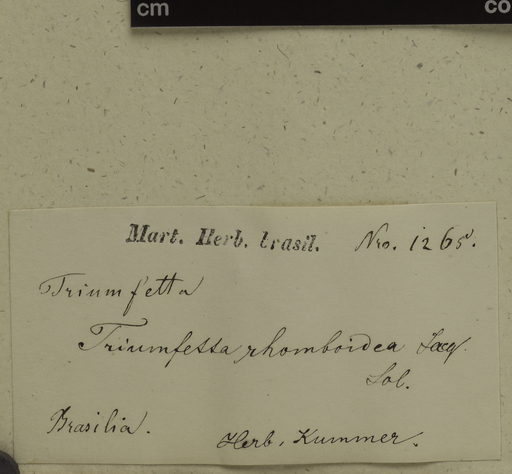 cm
co
Mart. Herb. brasil. Nro. 1265.
Triumfetta
Triumfetta rhomboidea Jacq.
Sol.
Brasilia.
Herb. Kummer.